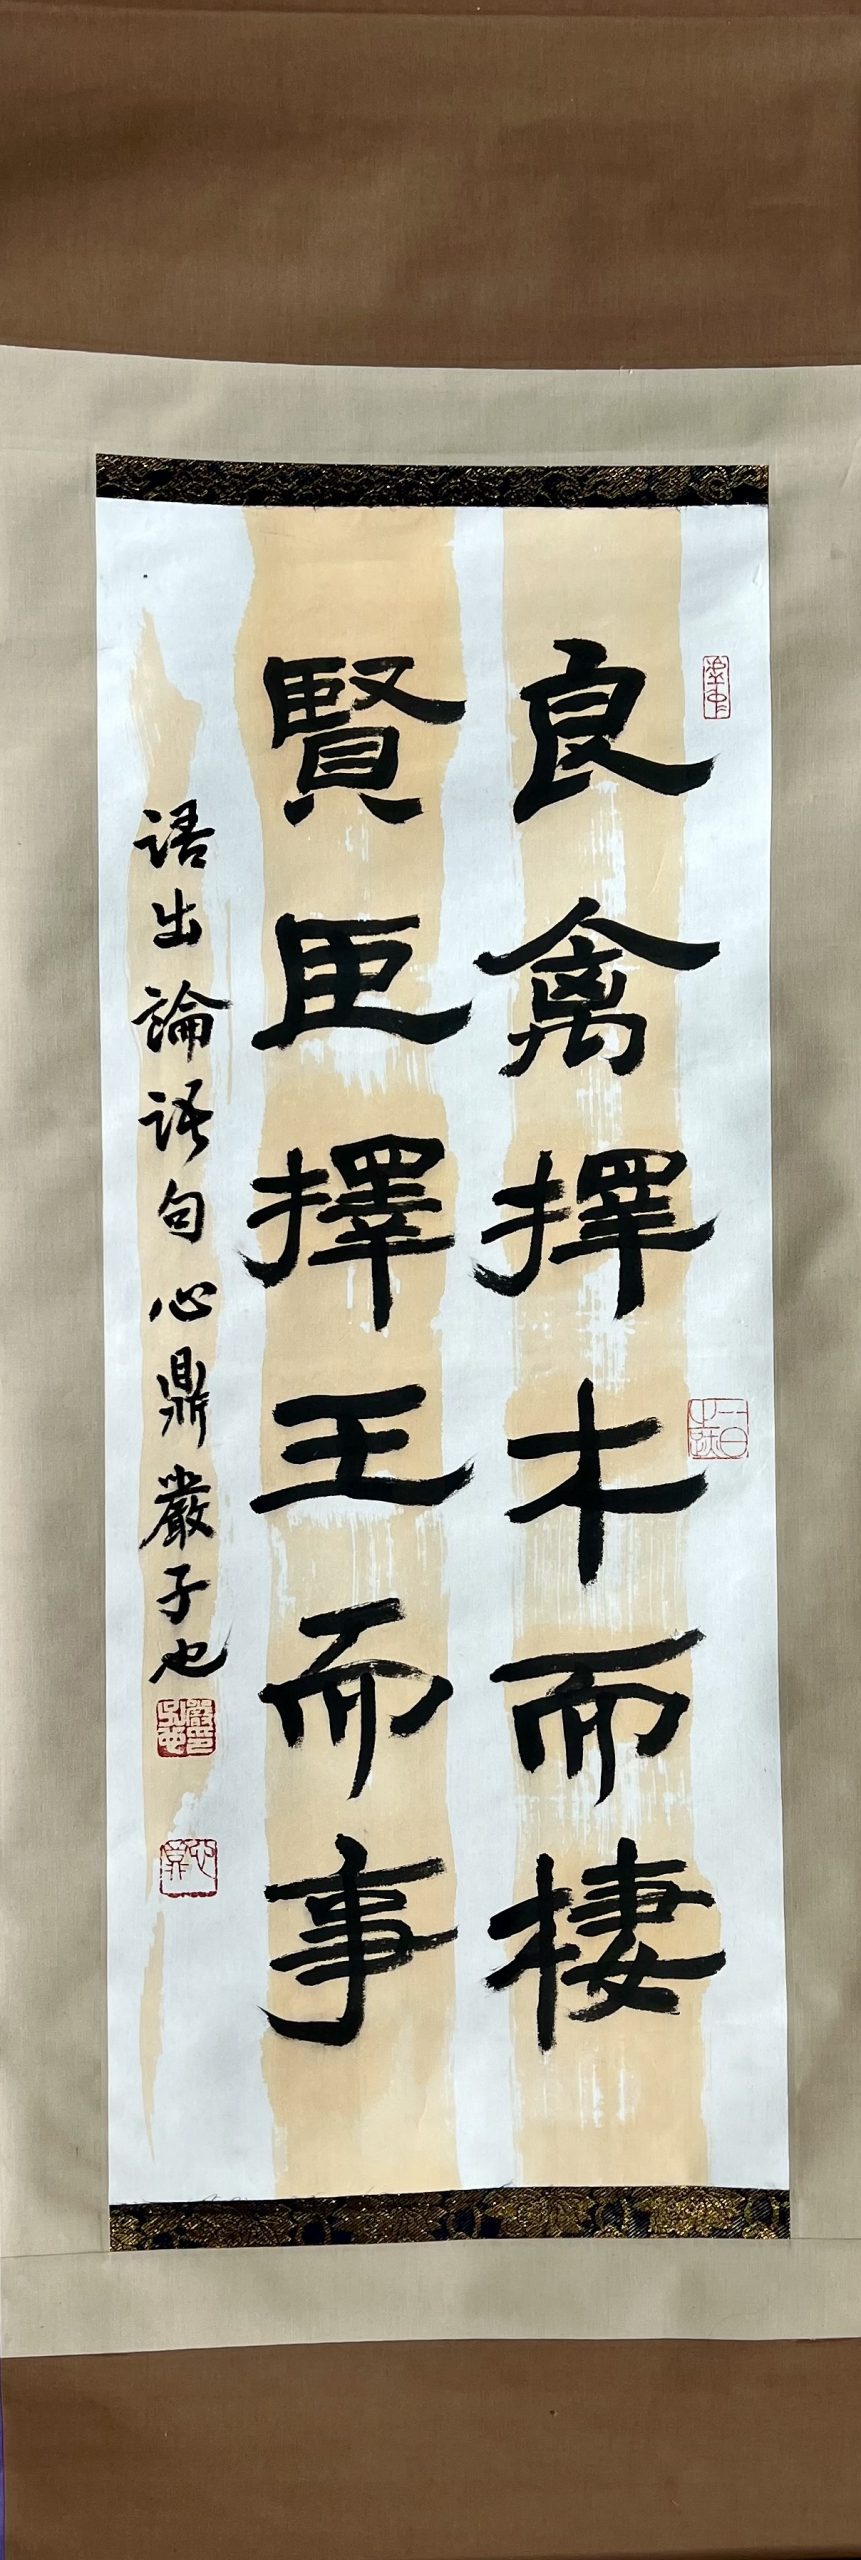 良禽擇木而棲
賢臣擇王而事
語出論語句心鼎嚴子也